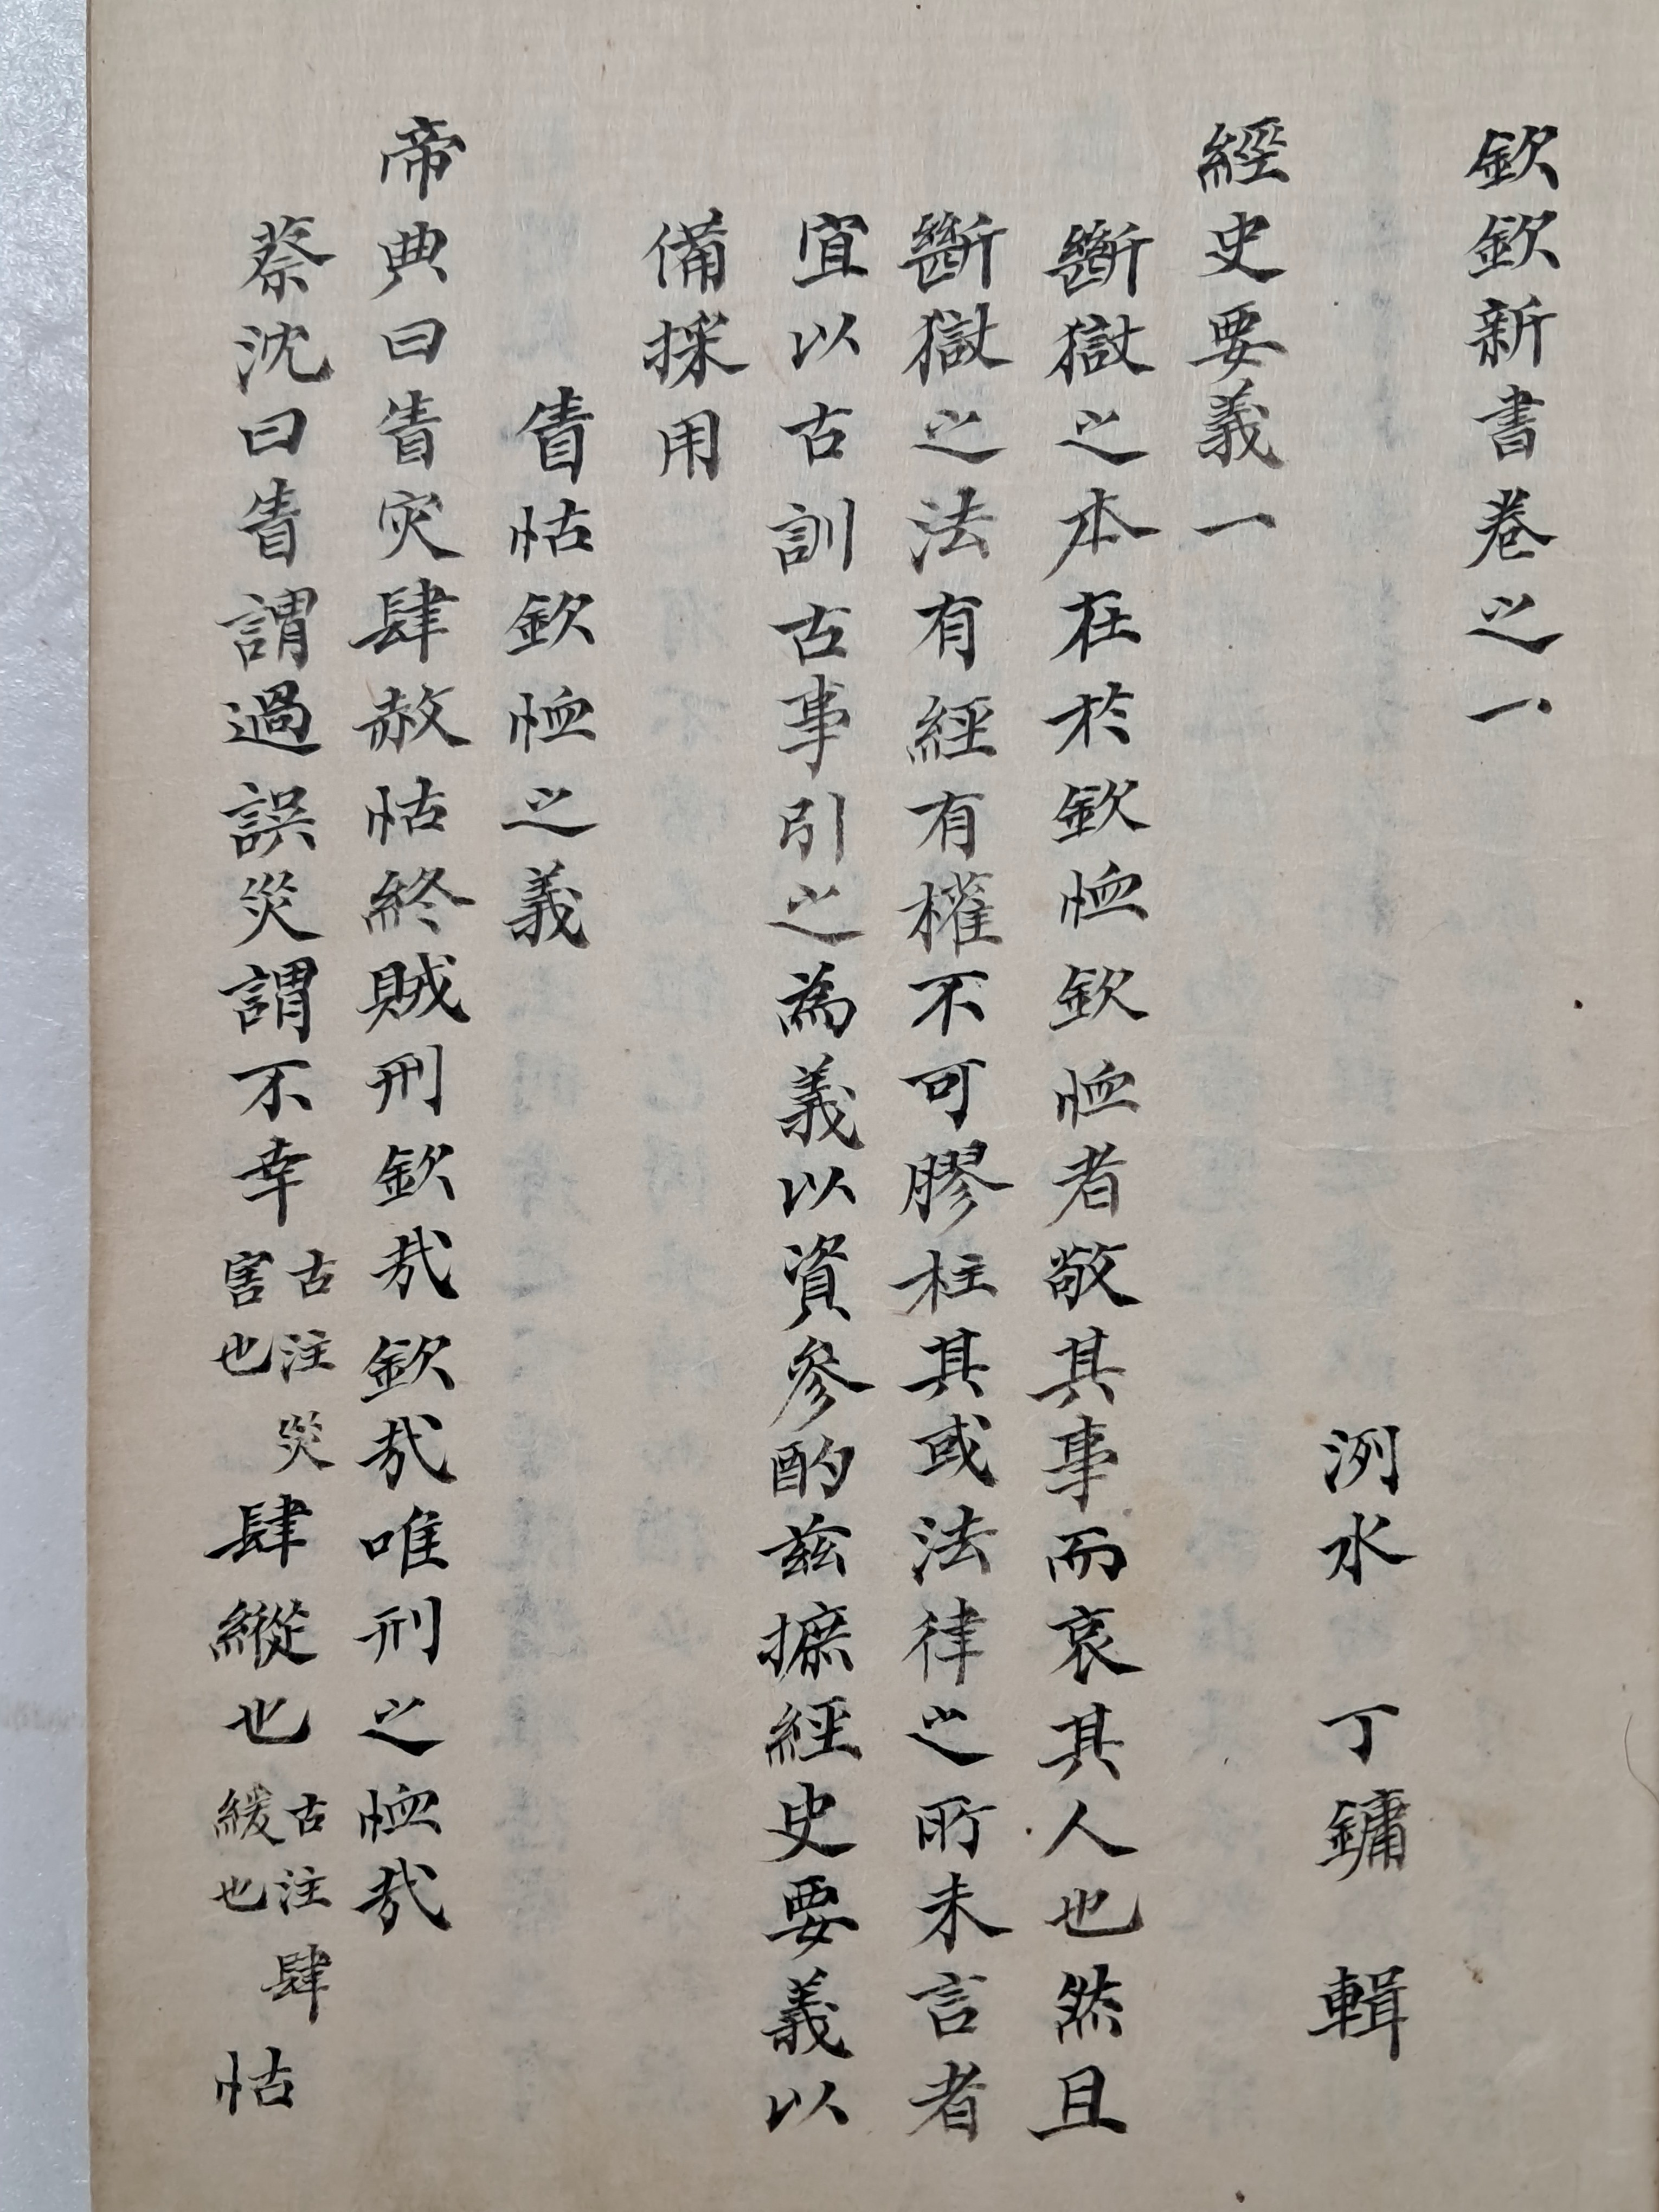 欽欽新書卷之一
洌水 丁鏞 輯
經史要義一
斷獄之本在於欽恤欽恤者敬其事而哀其人也然且
斷獄之法有經有權不可膠柱其或法律之所未言者
宜以古訓古事引之為義以資參酌茲摭經史要義以
備採用
眚怙欽恤之義
帝典曰眚灾肆赦怙終賊刑欽㦲欽㦲唯刑之恤㦲
蔡沈曰眚謂過誤災謂不幸古注災害也肆縱也古注肆緩也怙